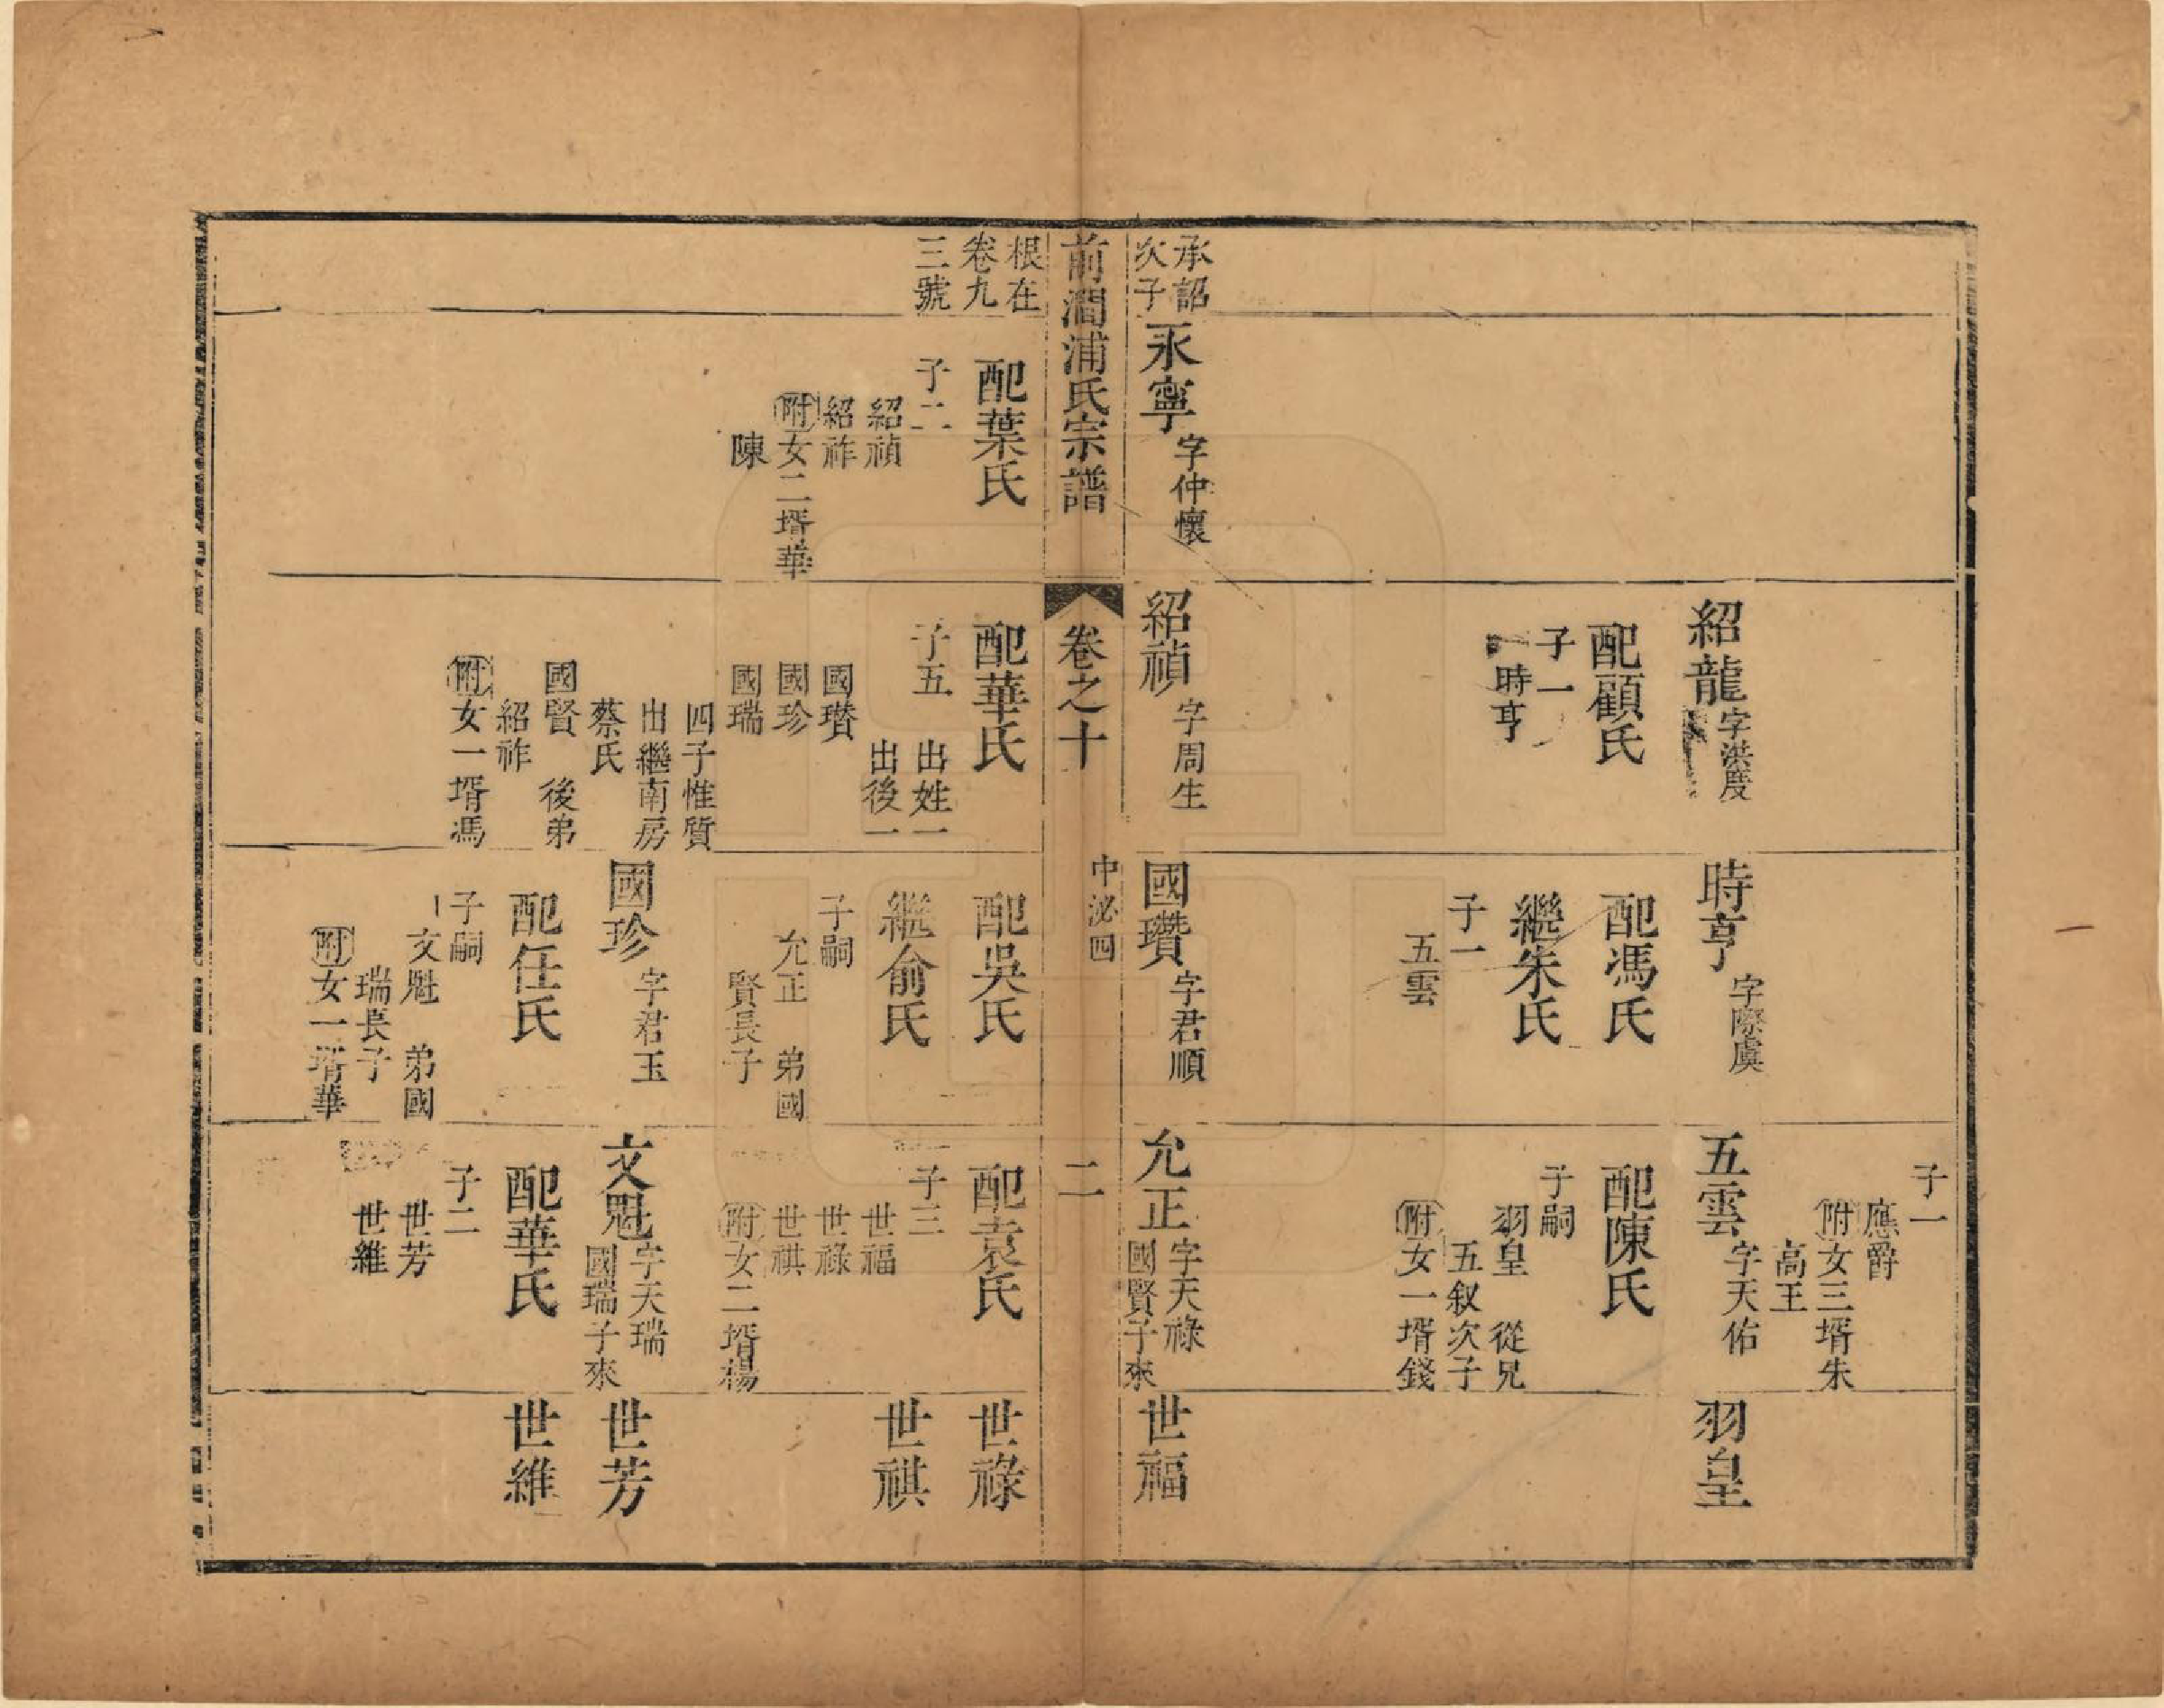 紹龍 字洪度
配顧氏
子一
時亨
時亨 字際虞
配馮氏
繼朱氏
子一
五雲
子一
應爵
附 女三壻朱
高王
五雲 字天佑
配陳氏
子嗣
羽皇 從兄
五叙次子
附 女一壻錢
羽皇
承詔
次子
永寧 字仲懷
紹禎 字周生
國瓚 字君順
允正 字天祿
國賢子來
世福
前澗浦氏宗譜
卷之十
中泌四
二
根在
卷九
三號
配葉氏
子二
紹禎
紹祚
附 女二壻華
陳
配華氏
子五 出姓一
出後一
國瓚
國珍
國瑞
四子惟質
出繼南房
蔡氏
國賢 後弟
紹祚
附 女一壻馮
配吳氏
繼俞氏
子嗣
允正 弟國
賢長子
國珍 字君玉
配任氏
子嗣
文魁 弟國
瑞長子
附 女一壻華
配袁氏
子三
世福
世祿
世祺
附 女二壻楊
文魁 字天瑞
國瑞子來
配華氏
子二
世芳
世維
世祿
世祺
世芳
世維